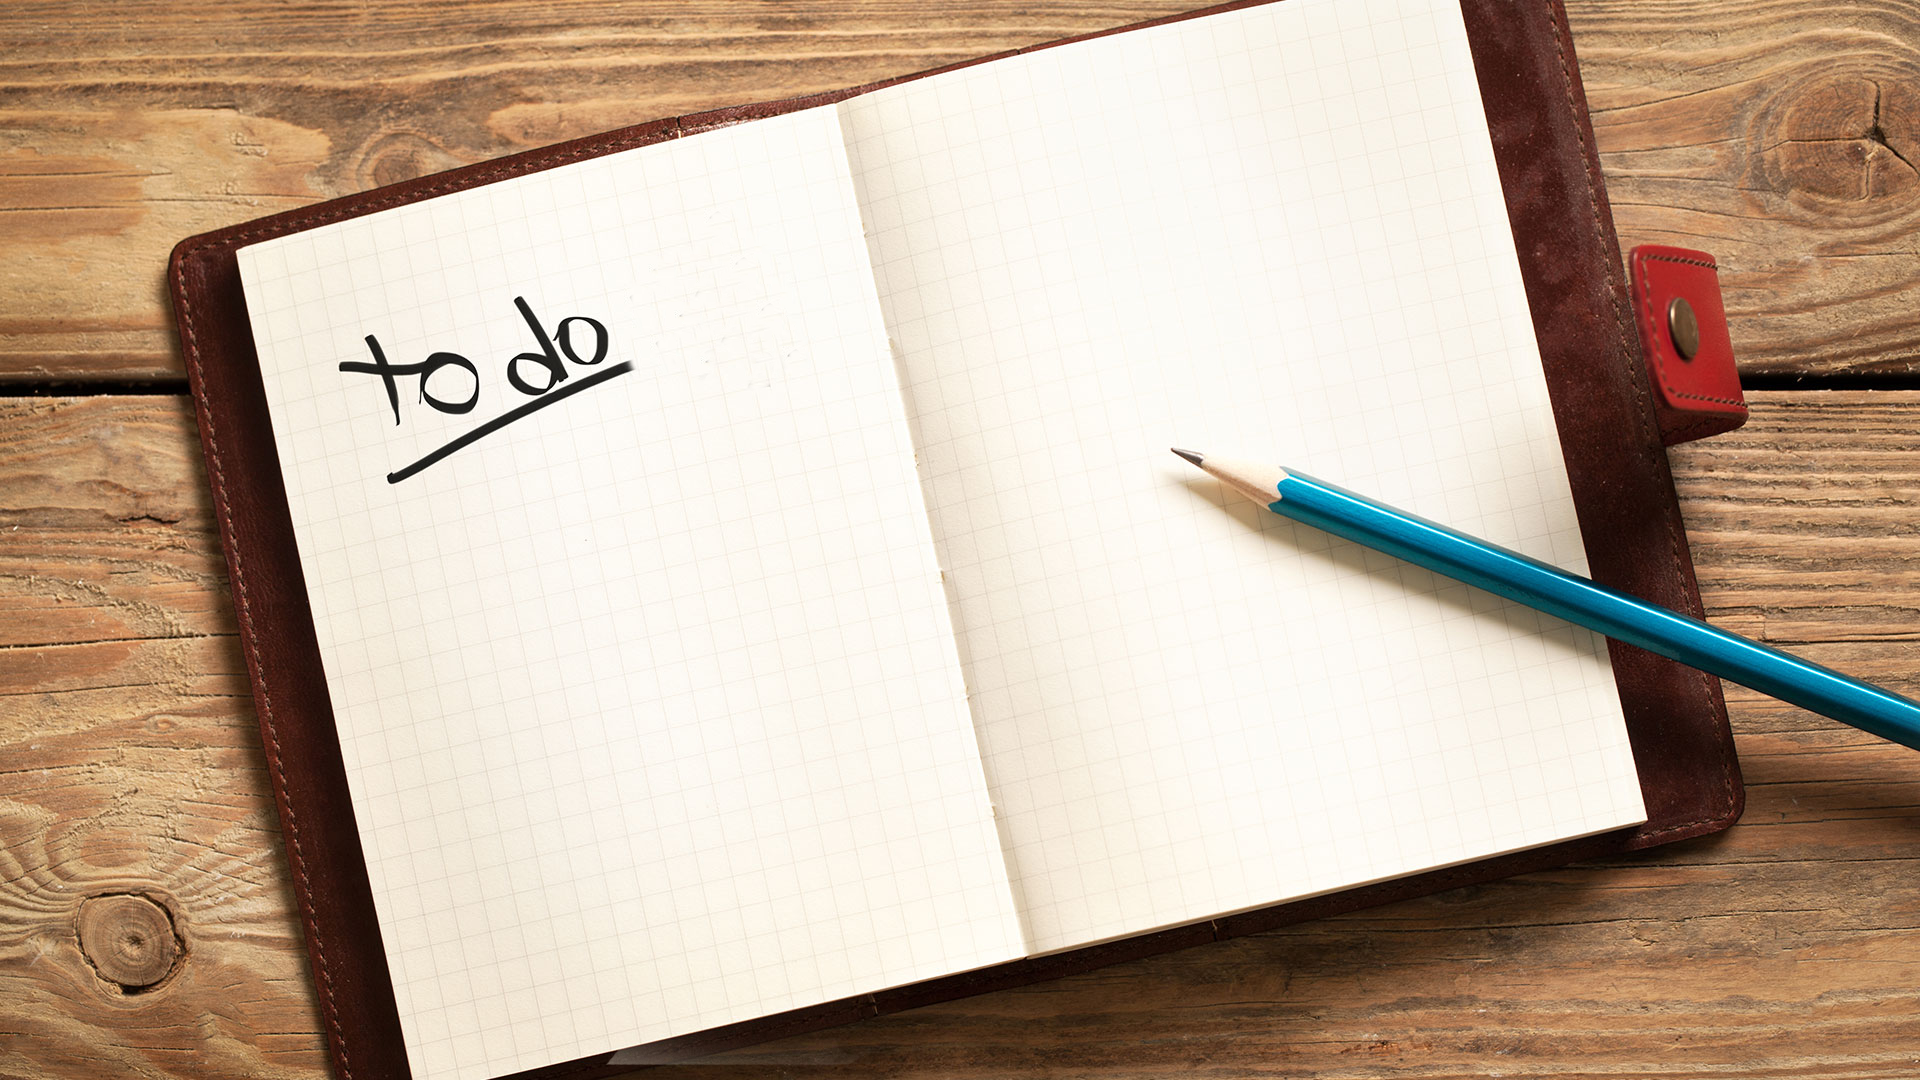 to do